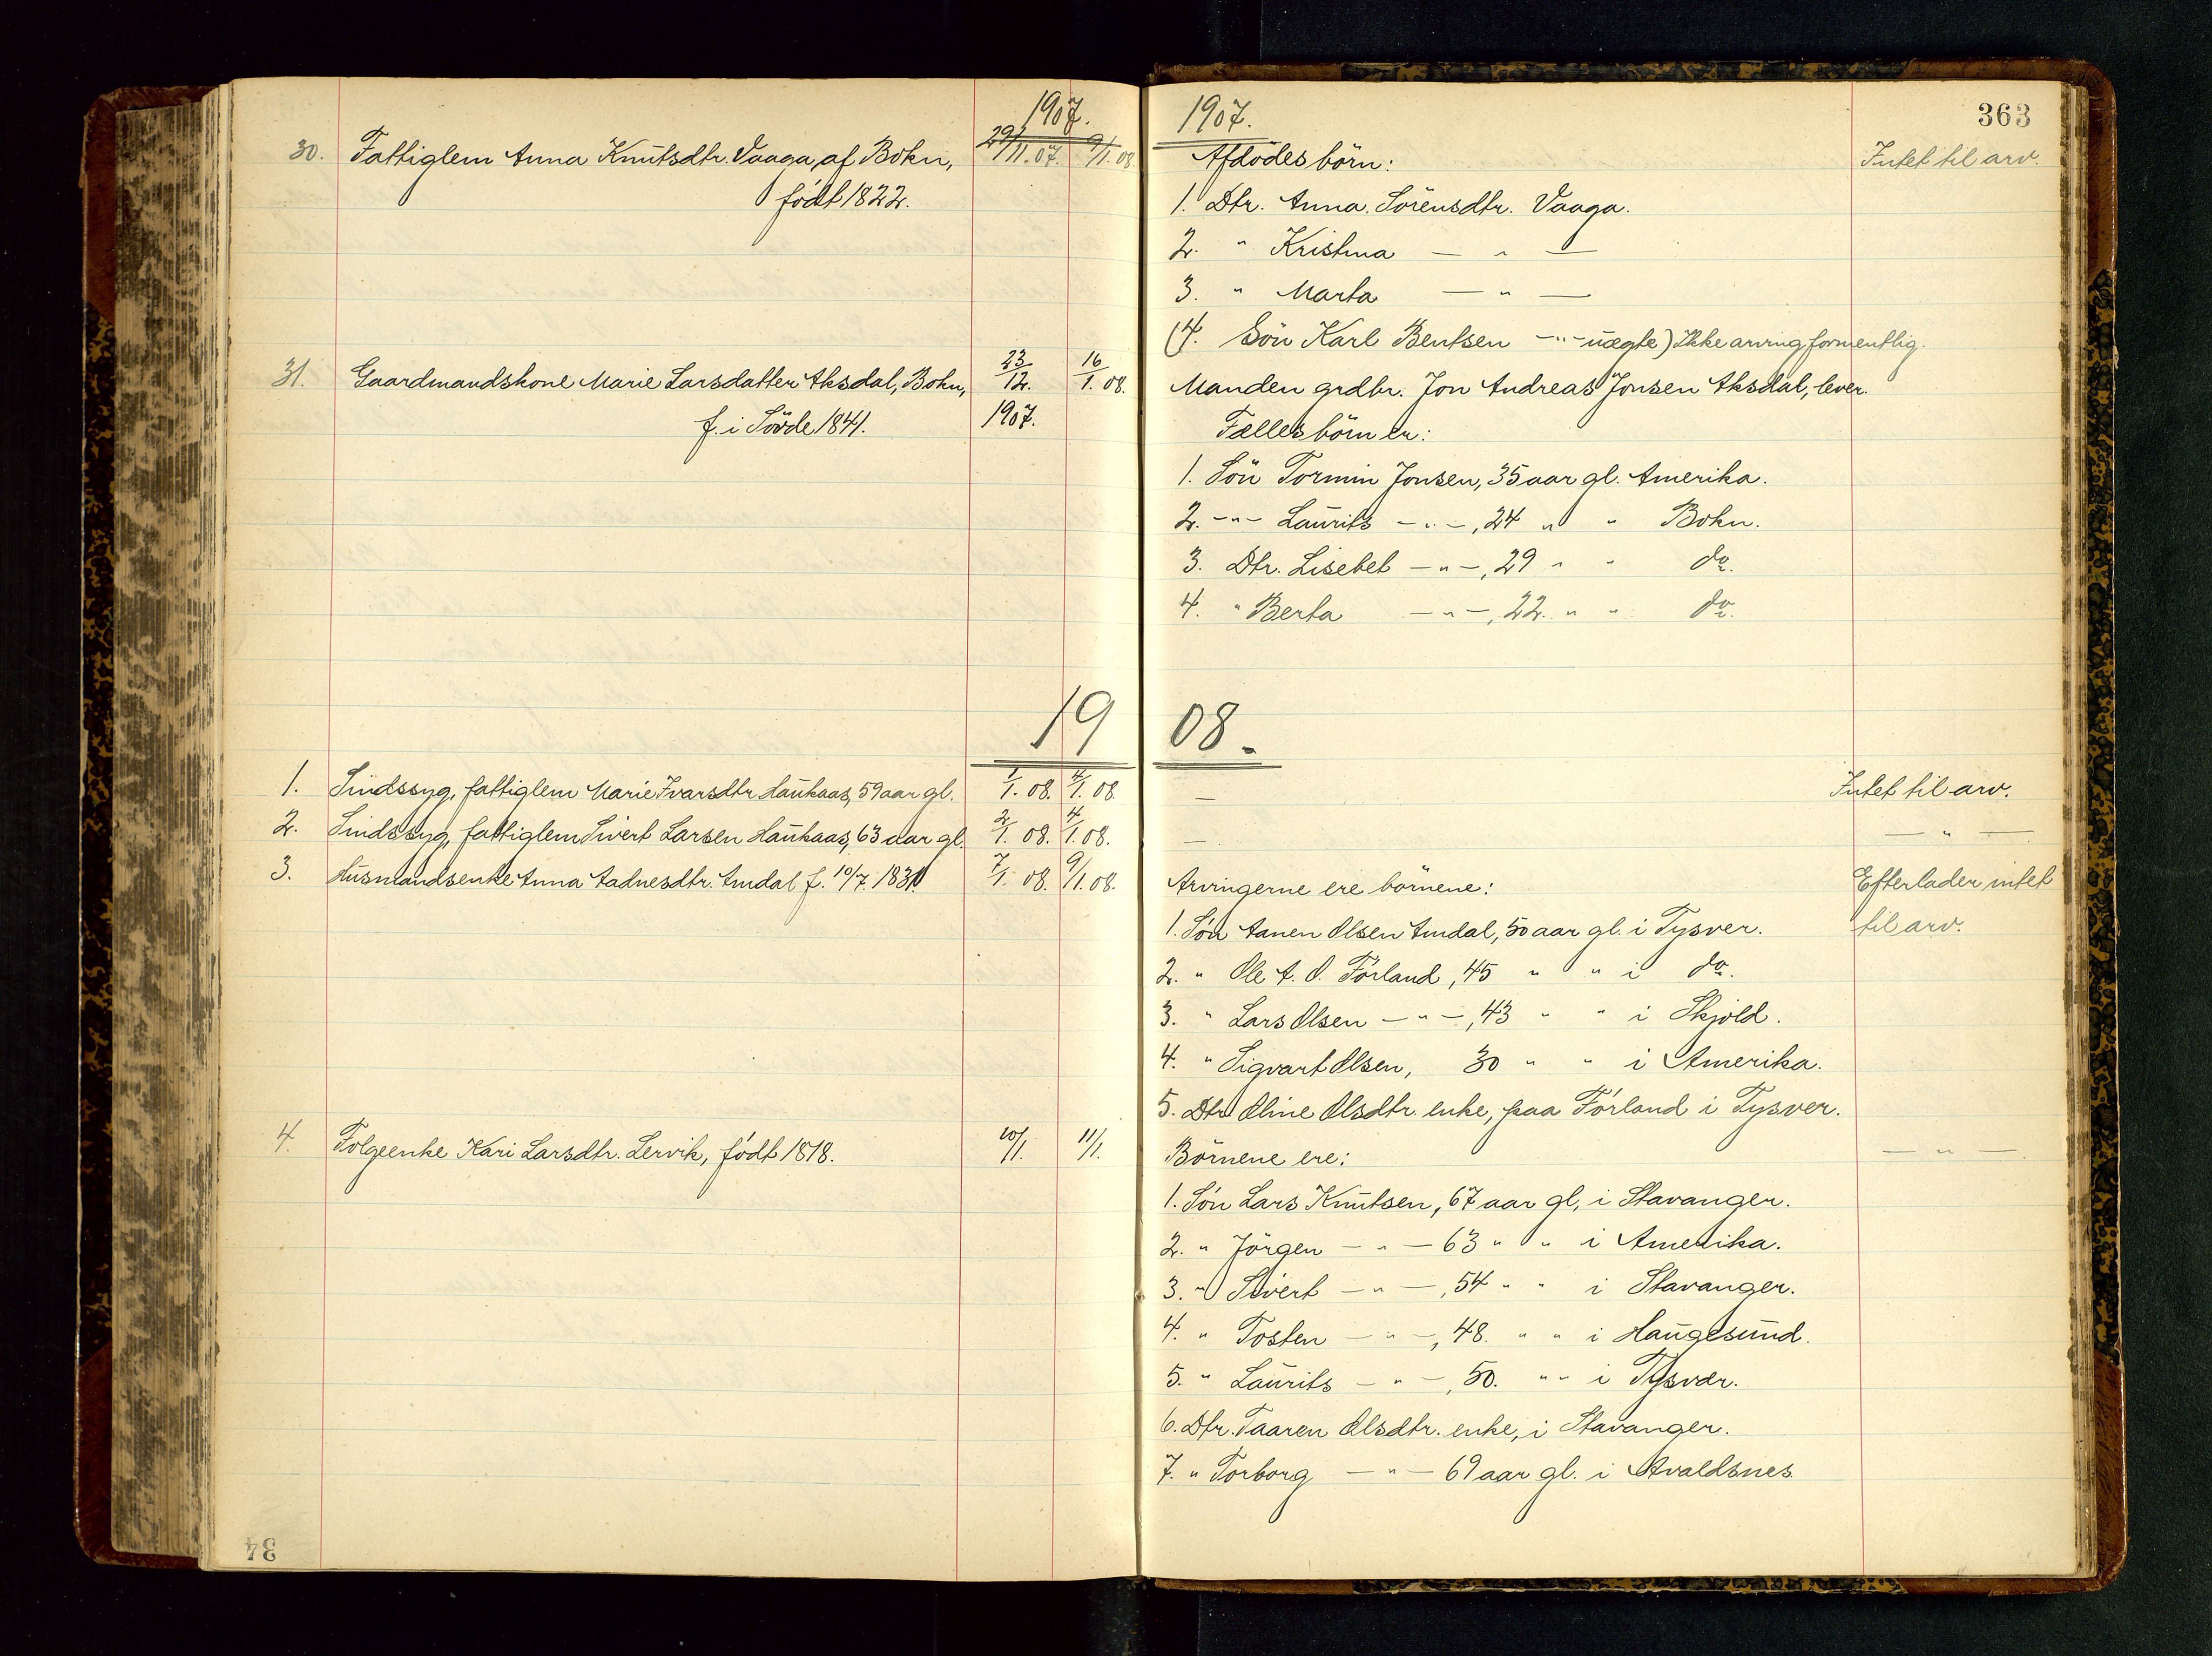 1907.
30. Fattiglem Anna Knutsdtr. Vaaga, af Bokn, 29/11.07. 9/1.08
født 1822.
31. Gaardmandskone Marie Larsdatter Aksdal, Bokn, 23/12. 16/1.08.
f. i Sövde 1841. 1907.
19
1. Sindssyg, fattiglem Marie Ivarsdtr Haukaas, 59 aar gl. 1/1.08. 4/1.08
2. Sindssyg, fattiglem Sivert Larsen Haukaas, 63 aar gl. 2/1.08. 4/1.08.
3. Husmandsenke Anna Aadnesdtr. Amdal f. 10/7. 1831. 7/1.08. 9/1.08.
4. Folgeenke Kari Larsdtr. Lervik, født 1818. 10/1. 11/1.
34
1907. 363
Afdödes börn: Intet til arv.
1. Dtr. Anna Sörensdtr. Vaaga.
2. " Kristina — " —
3. " Marta — " —
(4. Sön Karl Bentsen —"— uægte) Ikke arving formentlig.
Manden grdbr. Jon Andreas Jonsen Aksdal, lever.
Fælles börn er:
1. Sön Tormin Jonsen, 35 aar gl. Amerika.
2. -"- Laurits -"-, 24 " " Bokn.
3. Dtr. Lisebet -"-, 29 " " do.
4. " Berta -"-, 22. " " do.
08.
— Intet til arv.
— — " —
Arvingerne ere börnene: Efterlader intet
1. Søn Aanen Olsen Amdal, 50 aar gl. i Tysver. til arv.
2. " Ole A. O. Førland, 45 " " i do.
3. " Lars Olsen — " —, 43 " " i Skjold.
4. " Sigvart Olsen, 30 " " i Amerika.
5. Dtr. Oline Olsdtr. enke, paa Førland i Tysver.
Börnene ere: — " —.
1. Søn Lars Knutsen, 67 aar gl, i Stavanger.
2. " Jörgen — " — 63 " " i Amerika.
3. " Sivert — " —, 54 " " i Stavanger.
4. " Tosten — " —, 48. " " i Haugesund.
5. " Laurits — " —, 50. " " i Tysvær.
6. Dtr. Taaren Olsdtr. enke, i Stavanger.
7. " Torborg — " — 69 aar gl. i Avaldsnes